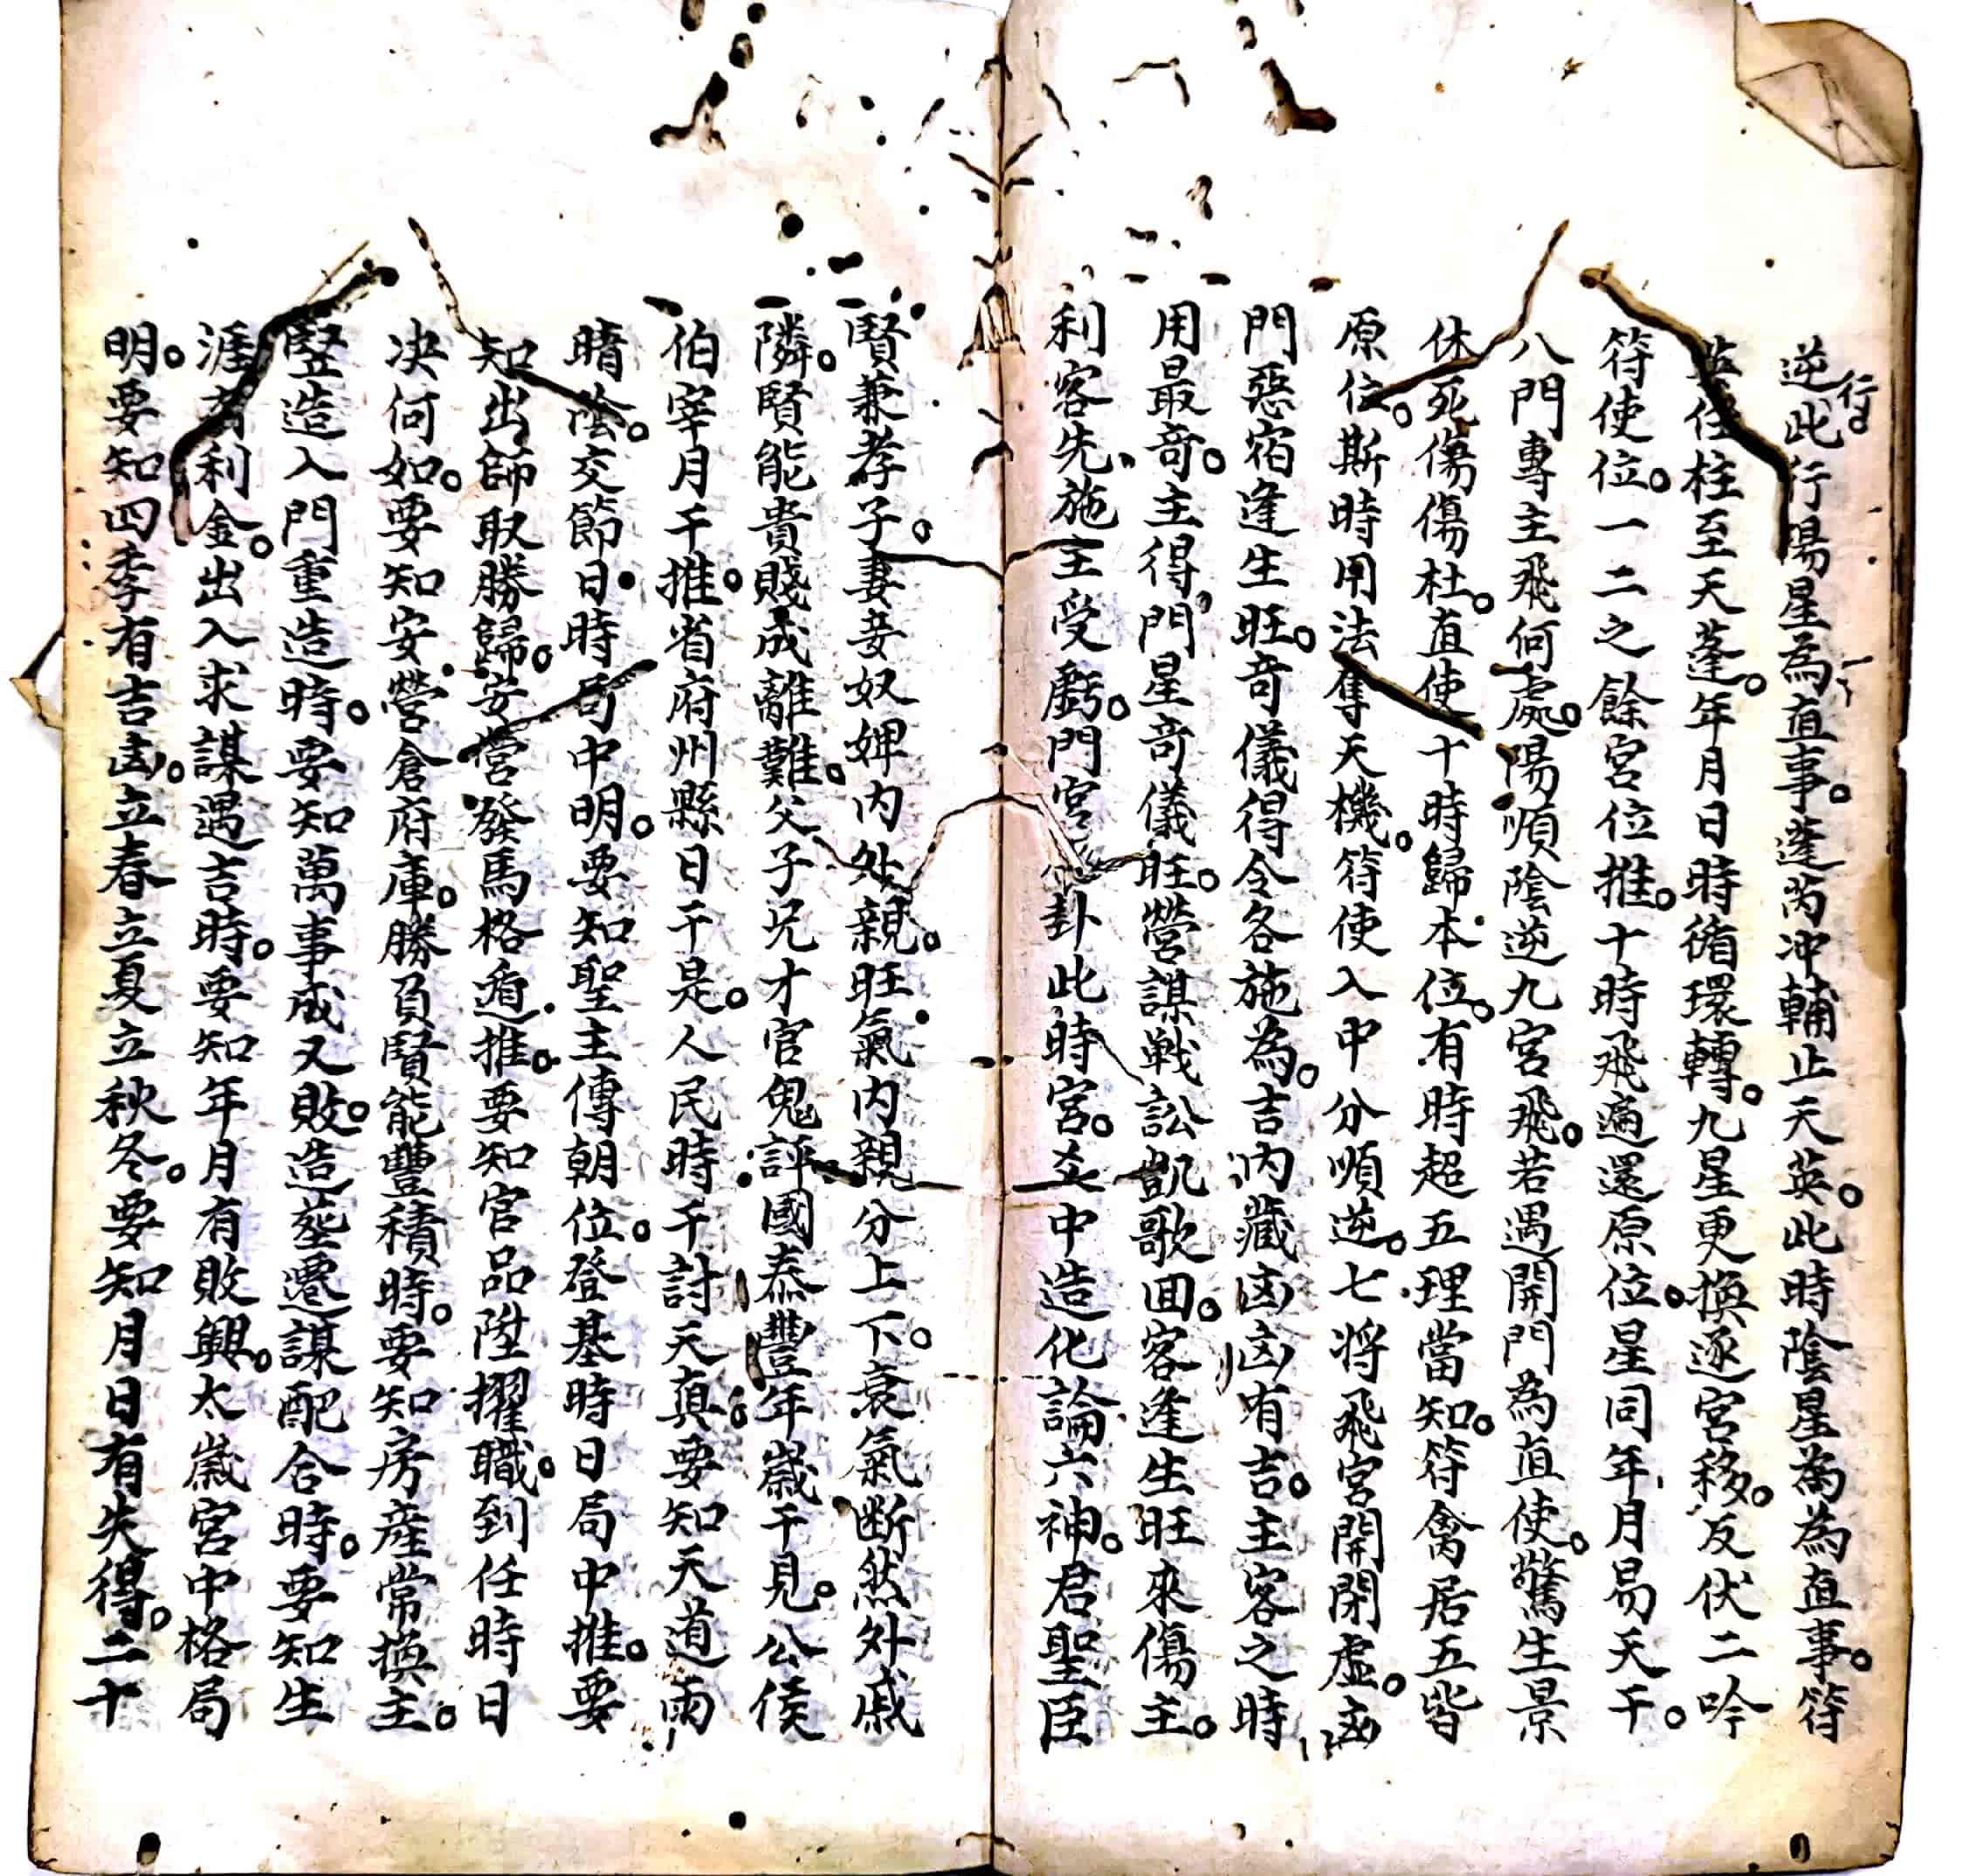 逆行此行陽星為直事蓬芮冲輔止天英此時陰星為為直事符
任柱至天蓬年月日時循環轉九星更換逐宮移反伏二吟
符使位一二之餘宮位推十時飛遍還原位星同年月易天干
八門專主飛何處陽順陰逆九宮飛若遇開門為直使驚生景
休死傷傷杜直使十時歸本位有時超五理當知符禽居五皆
原位斯時用法奪天機符使入中分順逆七將飛宮開閉虛凶
門惡宿逢生旺奇儀得令各施為吉內藏凶凶有吉主客之時
用最奇主得門星奇儀旺營謀戰訟凱歌回客逢生旺來傷主
利客先施主受虧門宮卦此時宮爻中造化論六神君聖臣
賢兼孝子妻妾奴婢內外親旺氣內親分上下衰氣断然外戚
隣賢能貴賤成離難父子兄才官鬼評國泰豐年歲干見公侯
伯宰月干推省府州縣日干是人民時干討天真要知天道雨
晴陰交節日時局中明要知聖主傳朝位登基時日局中推要
知出師取勝歸安營發馬格遁推要知官品陞擢職到任時日
决何如要知安營倉府庫勝負賢能豐積時要知房產常換主
豎造入門重造時要知萬事成又敗造塟遷謀配合時要知生
涯有利金出入求謀遇吉時要知年月有敗興太歲宮中格局
明要知四季有吉凶立春立夏立秋冬要知月日有失得二十